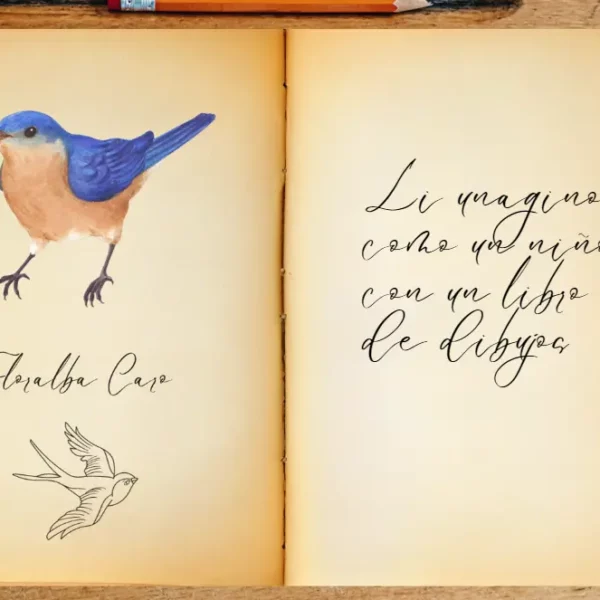 Floralba Caro
Li unagino
como un niño
con un libro
de dibujos